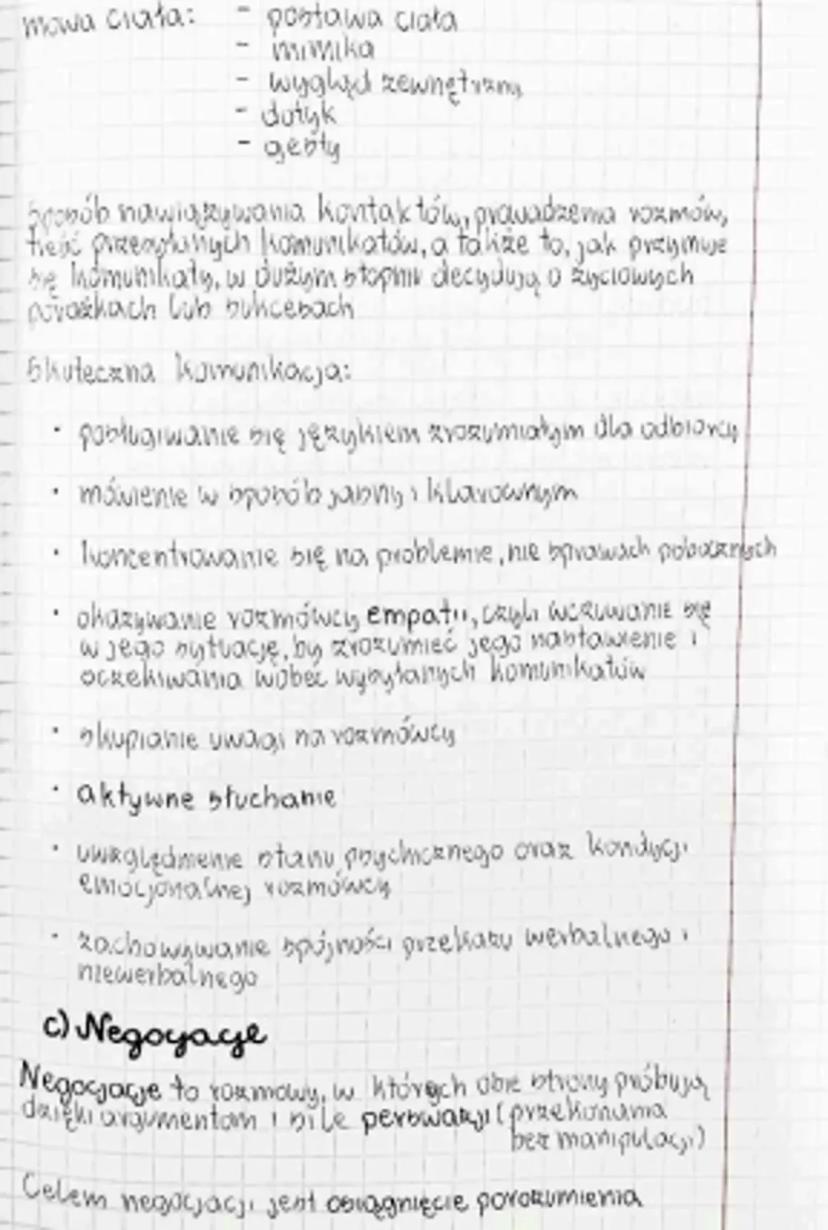 mowa ciała: - postawa ciała
- mimika
- wygląd zewnętrzny
- dotyk
- gesty
Sposób nawiązywania kontaktów, prowadzenia rozmów,
treść przesyłanych komunikatów, a także to, jak przyjmuje
się komunikaty, w dużym stopniu decydują o życiowych
porażkach lub sukcesach
Skuteczna komunikacja:
· posługiwanie się językiem zrozumiałym dla odbiorcy
· mówienie w sposób jasny i klarownym
· koncentrowanie się na problemie, nie sprawach pobocznych
· okazywanie rozmówcy empatii, czyli wczuwanie się
w jego sytuację, by zrozumieć jego nastawienie i
oczekiwania wobec wysyłanych komunikatów
· skupianie uwagi na rozmówcy
· aktywne słuchanie
· uwzględnienie stanu psychicznego oraz kondycji
emocjonalnej rozmówcy
· zachowywanie spójności przekazu werbalnego i
niewerbalnego
c) Negocjacje
Negocjacje to rozmowy, w których obie strony próbują
dzięki argumentom i sile perswazji (przekonania
bez manipulacji)
Celem negocjacji jest osiągnięcie porozumienia